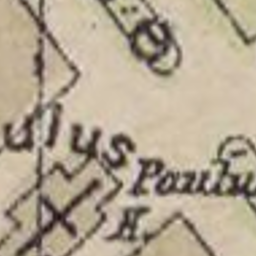 ulus
Paulu
K.